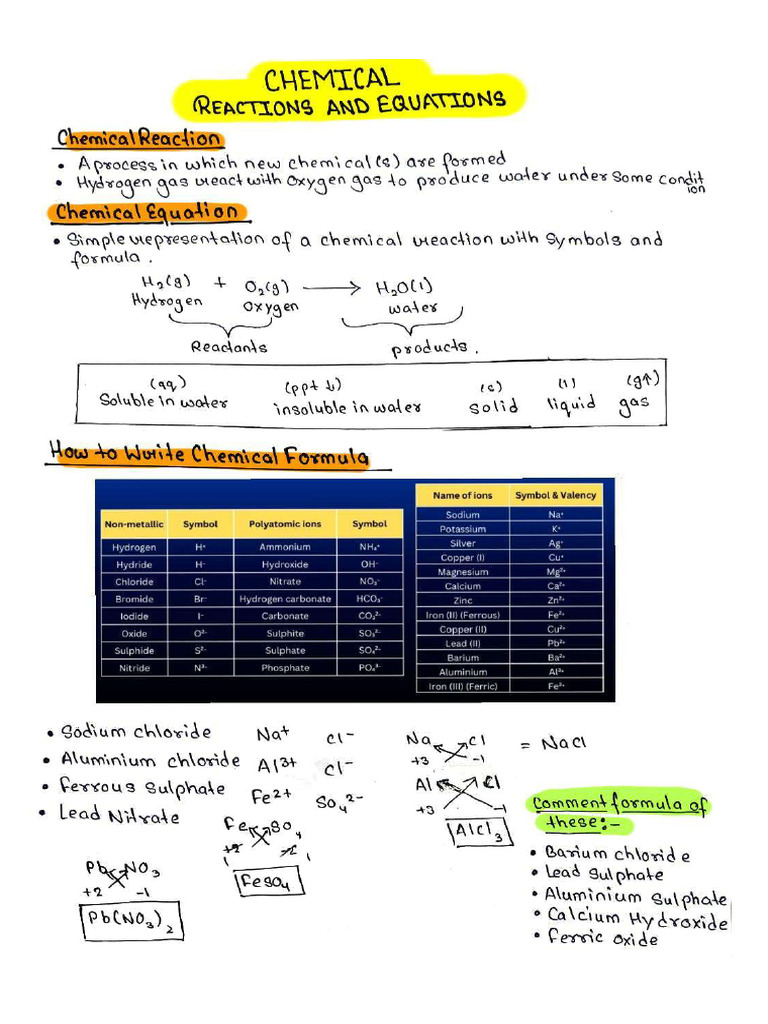 CHEMICAL
REACTIONS AND EQUATIONS
Chemical Reaction
• A process in which new chemical(s) are formed
• Hydrogen gas react with Oxygen gas to produce water under some condit
ion
Chemical Equation
• Simple representation of a chemical reaction with symbols and
formula.
H₂(g) + O₂(g) ⟶ H₂O(l)
Hydrogen Oxygen water
Reactants products.
(aq) (ppt ↓) (s) (l) (g↑)
Soluble in water insoluble in water solid liquid gas
How to Write Chemical Formula
Non-metallic Symbol Polyatomic ions Symbol
Hydrogen H⁺ Ammonium NH₄⁺
Hydride H⁻ Hydroxide OH⁻
Chloride Cl⁻ Nitrate NO₃⁻
Bromide Br⁻ Hydrogen carbonate HCO₃⁻
Iodide I⁻ Carbonate CO₃²⁻
Oxide O²⁻ Sulphite SO₃²⁻
Sulphide S²⁻ Sulphate SO₄²⁻
Nitride N³⁻ Phosphate PO₄³⁻
Name of ions Symbol & Valency
Sodium Na⁺
Potassium K⁺
Silver Ag⁺
Copper (I) Cu⁺
Magnesium Mg²⁺
Calcium Ca²⁺
Zinc Zn²⁺
Iron (II) (Ferrous) Fe²⁺
Copper (II) Cu²⁺
Lead (II) Pb²⁺
Barium Ba²⁺
Aluminium Al³⁺
Iron (III) (Ferric) Fe³⁺
• Sodium chloride Na⁺ Cl⁻
• Aluminium chloride Al³⁺ Cl⁻
• Ferrous Sulphate Fe²⁺ SO₄²⁻
• Lead Nitrate
Na Cl = NaCl
+3 -1
Al Cl
+3 -1
AlCl₃
Fe SO₄
+2 -2
1 1
FeSO₄
Pb NO₃
+2 -1
Pb(NO₃)₂
Comment formula of
these:-
• Barium chloride
• Lead Sulphate
• Aluminium Sulphate
• Calcium Hydroxide
• Ferric Oxide